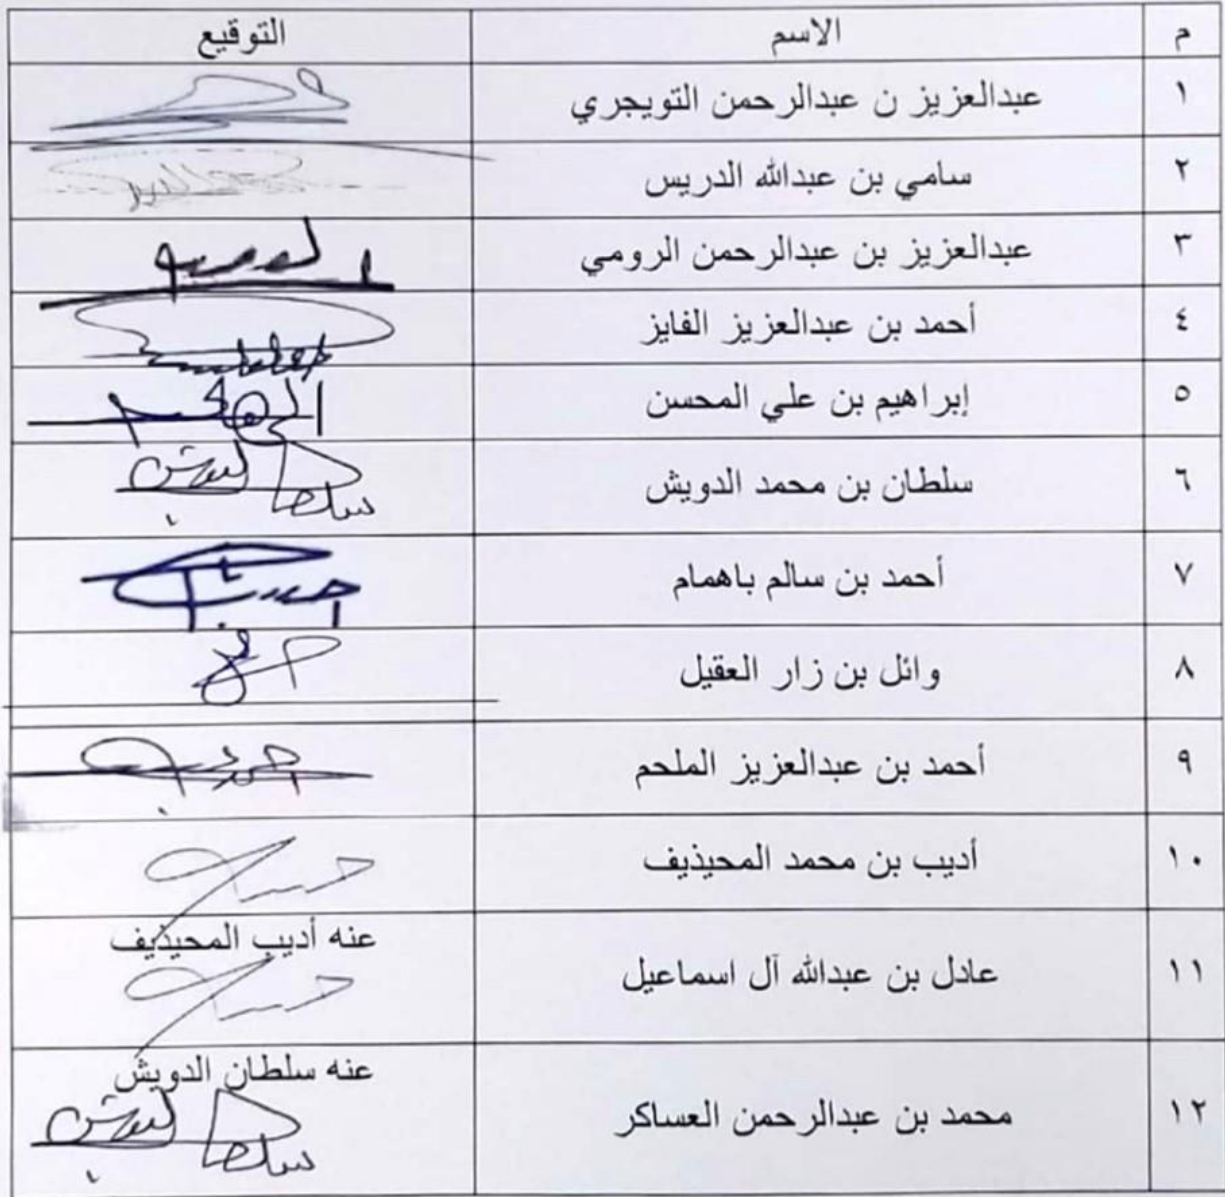 م الاسم التوقيع
١ عبدالعزيز ن عبدالرحمن التويجري
٢ سامي بن عبدالله الدريس
٣ عبدالعزيز بن عبدالرحمن الرومي
٤ أحمد بن عبدالعزيز الفايز
٥ إبراهيم بن علي المحسن
٦ سلطان بن محمد الدويش
٧ أحمد بن سالم باهمام
٨ وائل بن زار العقيل
٩ أحمد بن عبدالعزيز الملحم
١٠ أديب بن محمد المحيذيف
١١ عادل بن عبدالله آل اسماعيل عنه أديب المحيذيف
١٢ محمد بن عبدالرحمن العساكر عنه سلطان الدويش